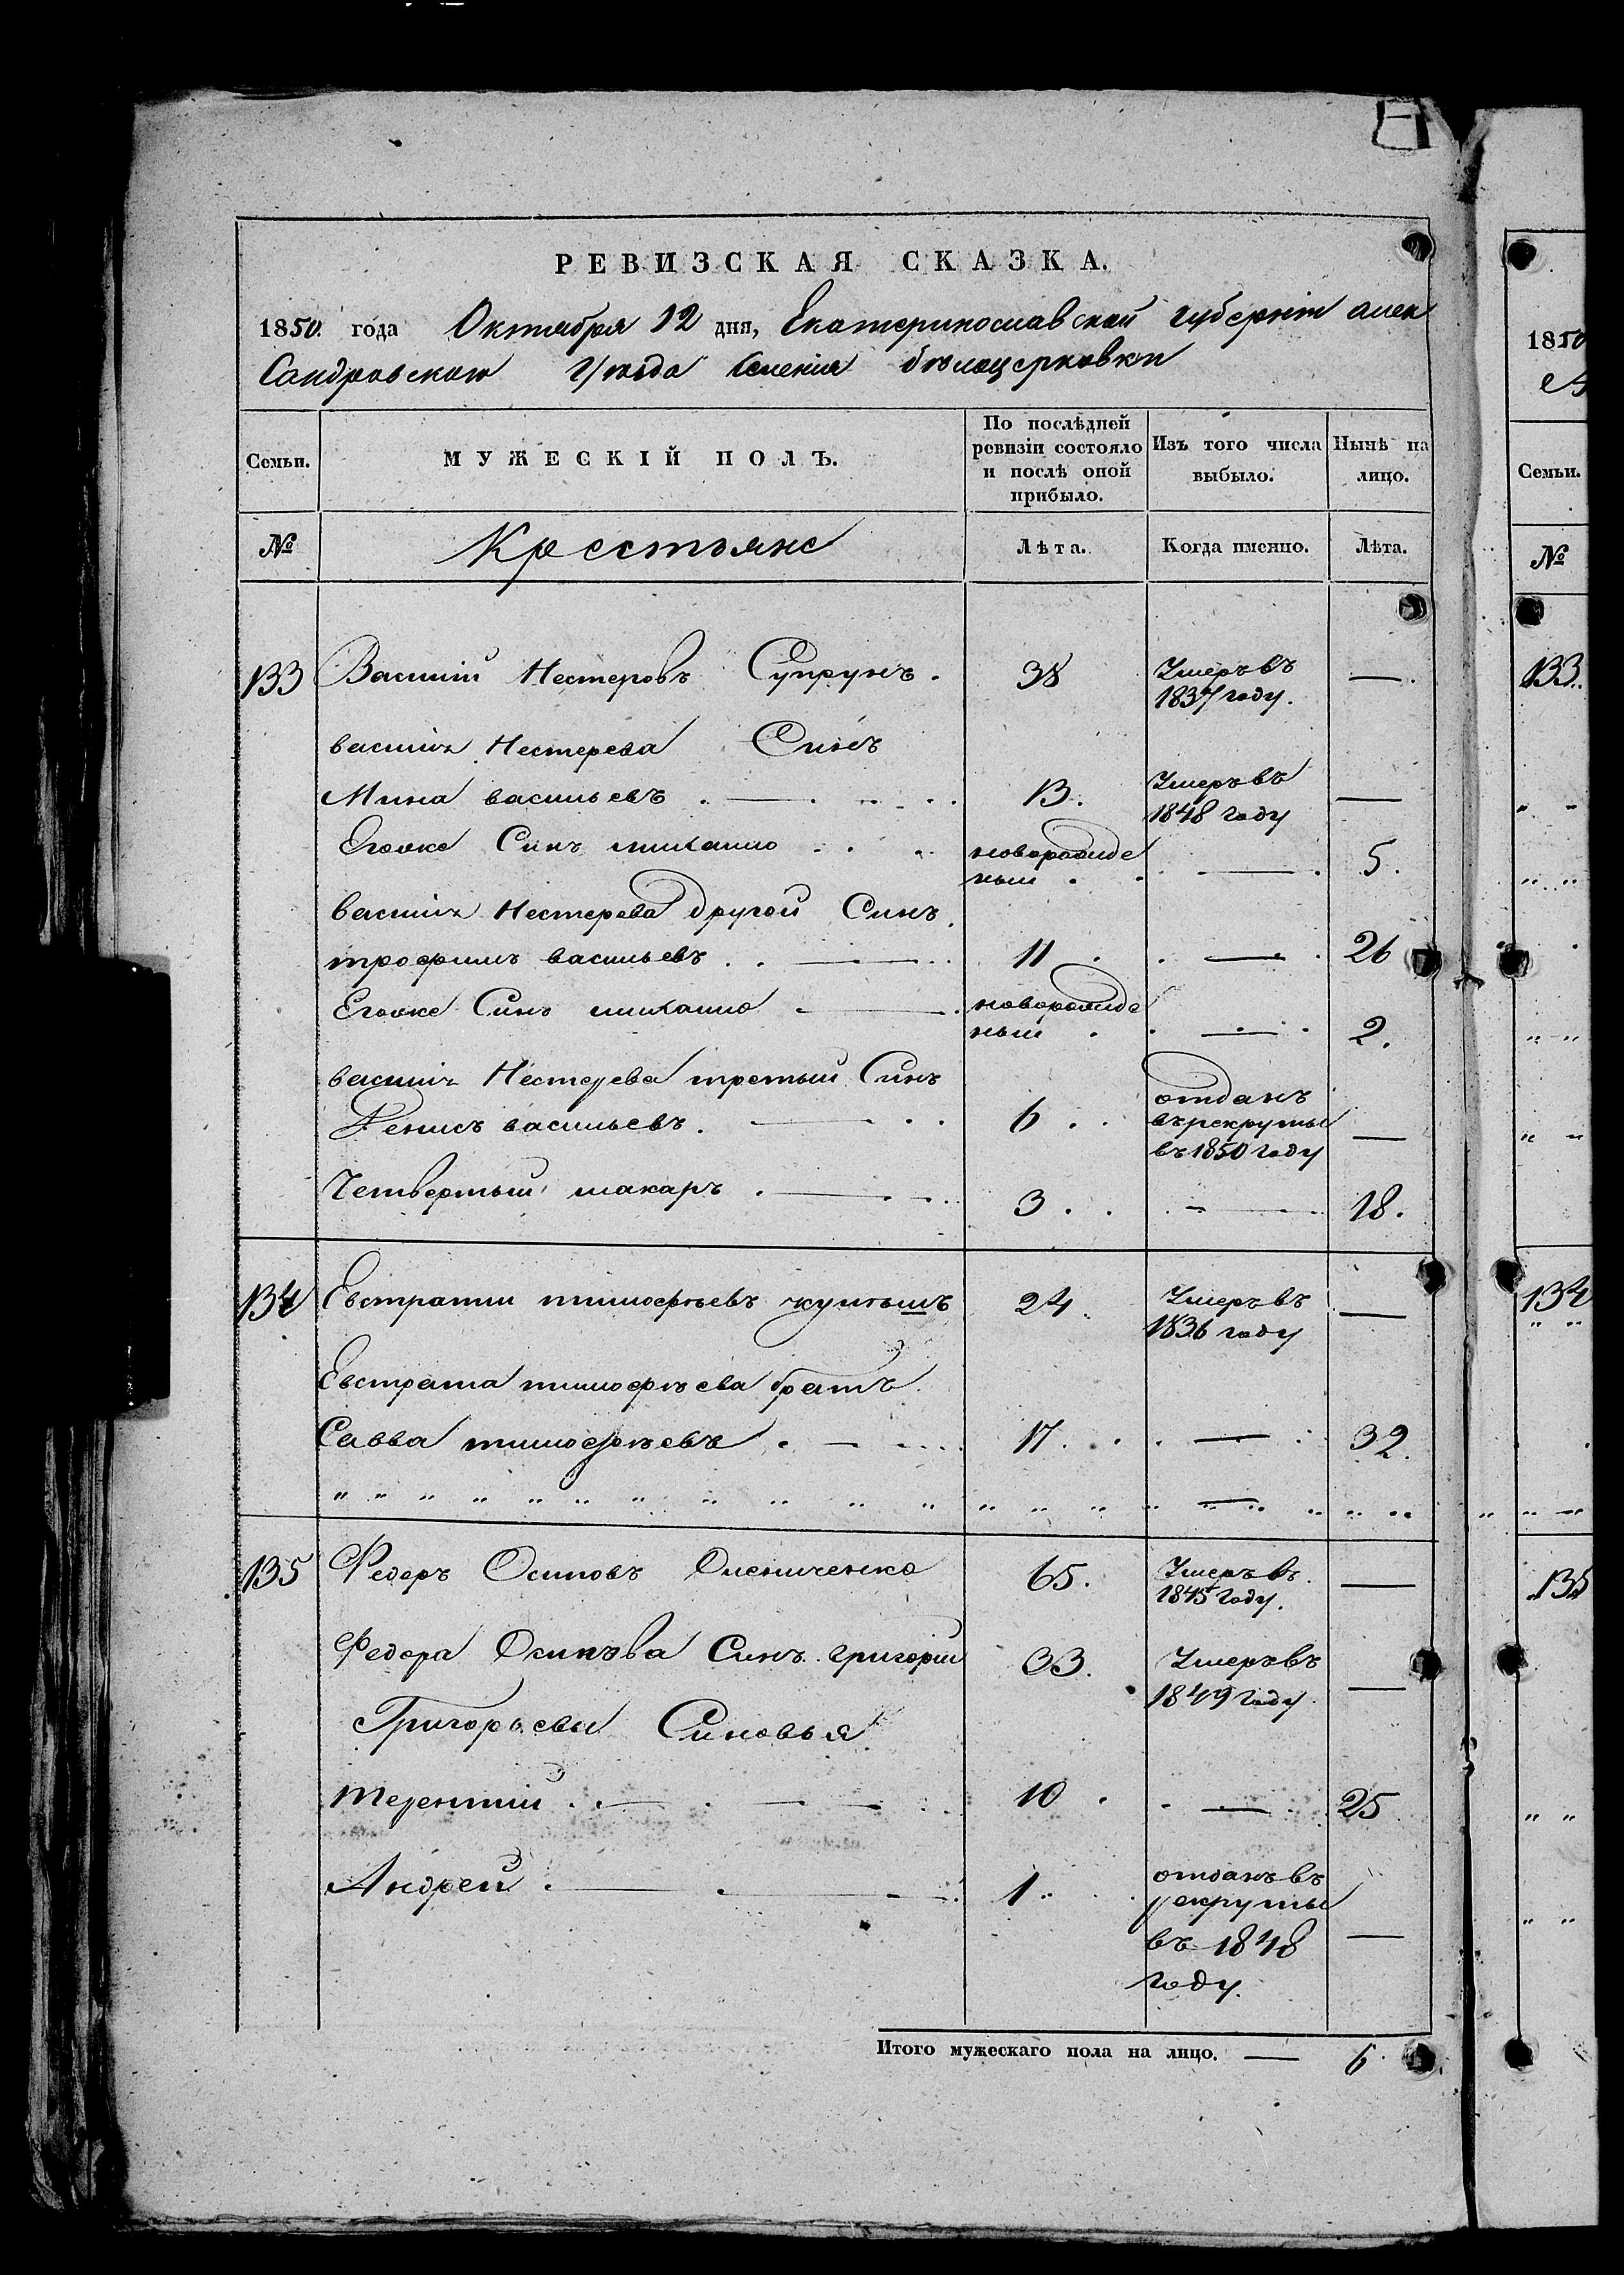 РЕВИЗСКАЯ СКАЗКА.
1850. года Октября 12 дня, Екатеринославской губернiи алек
Сандровского Уѣзда Селенiя бѣлоцерковки
Семьи. МУЖЕСКIЙ ПОЛЪ. По послѣдней ревизiи состояло и послѣ оной прибыло. Изъ того числа выбыло. Нынѣ на лицо.
№ Крестьяне Лѣта. Когда именно. Лѣта.
133 Василiй Нестеровъ Супрунъ. 38 Умеръ въ 1837 году. —
василiя Нестерева Синъ
Мина васильевъ 13. Умеръ въ 1848 году —
Егоже Синъ михаило новорожде ный — 5.
василiя Нестерева другой Синъ
трофимъ васильевъ 11 — 26
Егоже Синъ михаило новорожде ный — 2.
василiя Нестерева третый Синъ
Денисъ васильевъ. 6 отданъ въ рекруты въ 1850 году —
Четвертый макаръ 3 — 18.
134 Евстратiи тимофѣевъ 24 Умеръ въ 1836 году —
Евстрата тимофѣева братъ
Савва тимофѣевъ 17. — 32.
" " " " " " " " " " " " " " " — " " " "
135 Федоръ Осиповъ Олениченко 65. Умеръ въ 1845 году. —
Федора Осипова Синъ григорiй 33. Умеръ въ 1849 году —
Григорьеви Синовья
терентiй 10 — 25
Андрей 1 отданъ въ рекруты въ 1848 году. —
Итого мужескаго пола на лицо. — 6
1850
Семьи.
№
133.
134
135